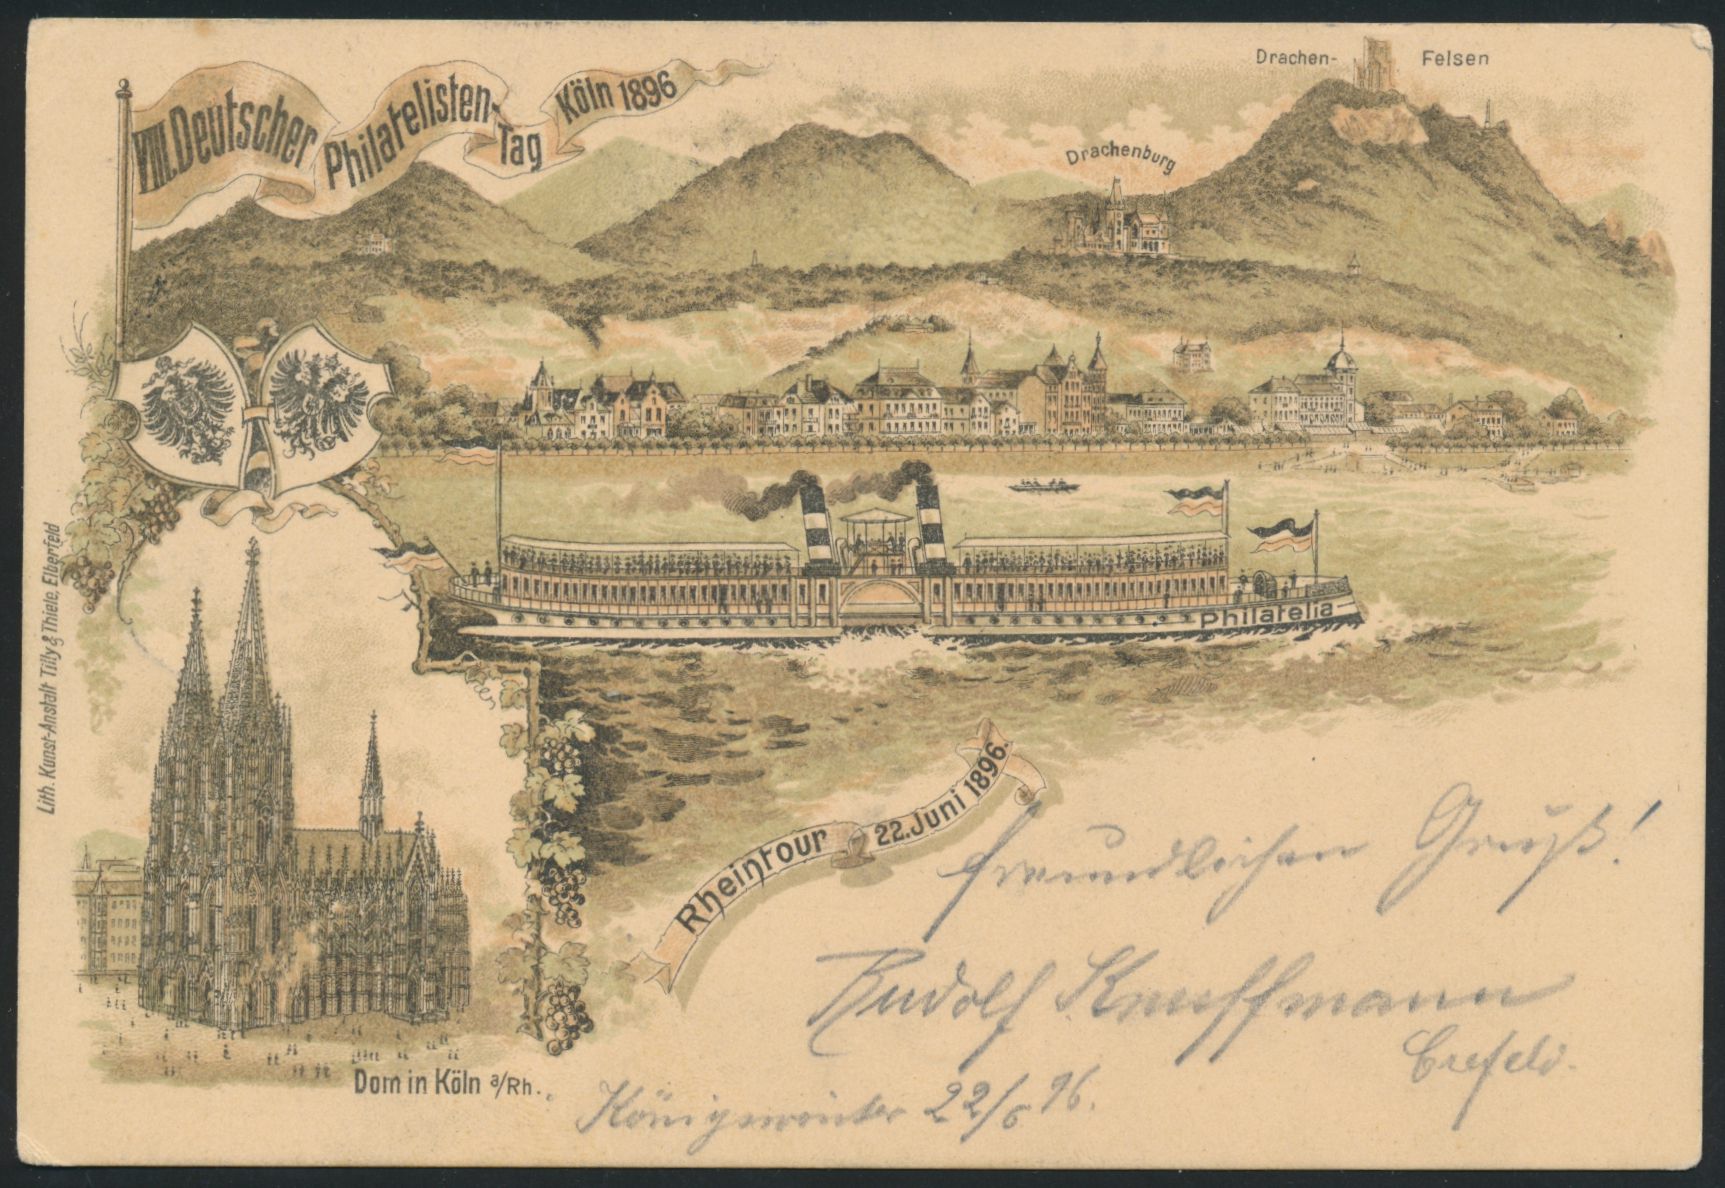 VIII. Deutscher
Philatelisten-
Tag
Köln 1896
Drachen-
Felsen
Drachenburg
Philatelia
Rheintour
22. Juni 1896.
Lith. Kunst-Anstalt Tilly & Thiele, Elberfeld
Dom in Köln a/Rh.
freundlichen Gruß!
Rudolf
Crefeld.
Königswinter 22/6 96.